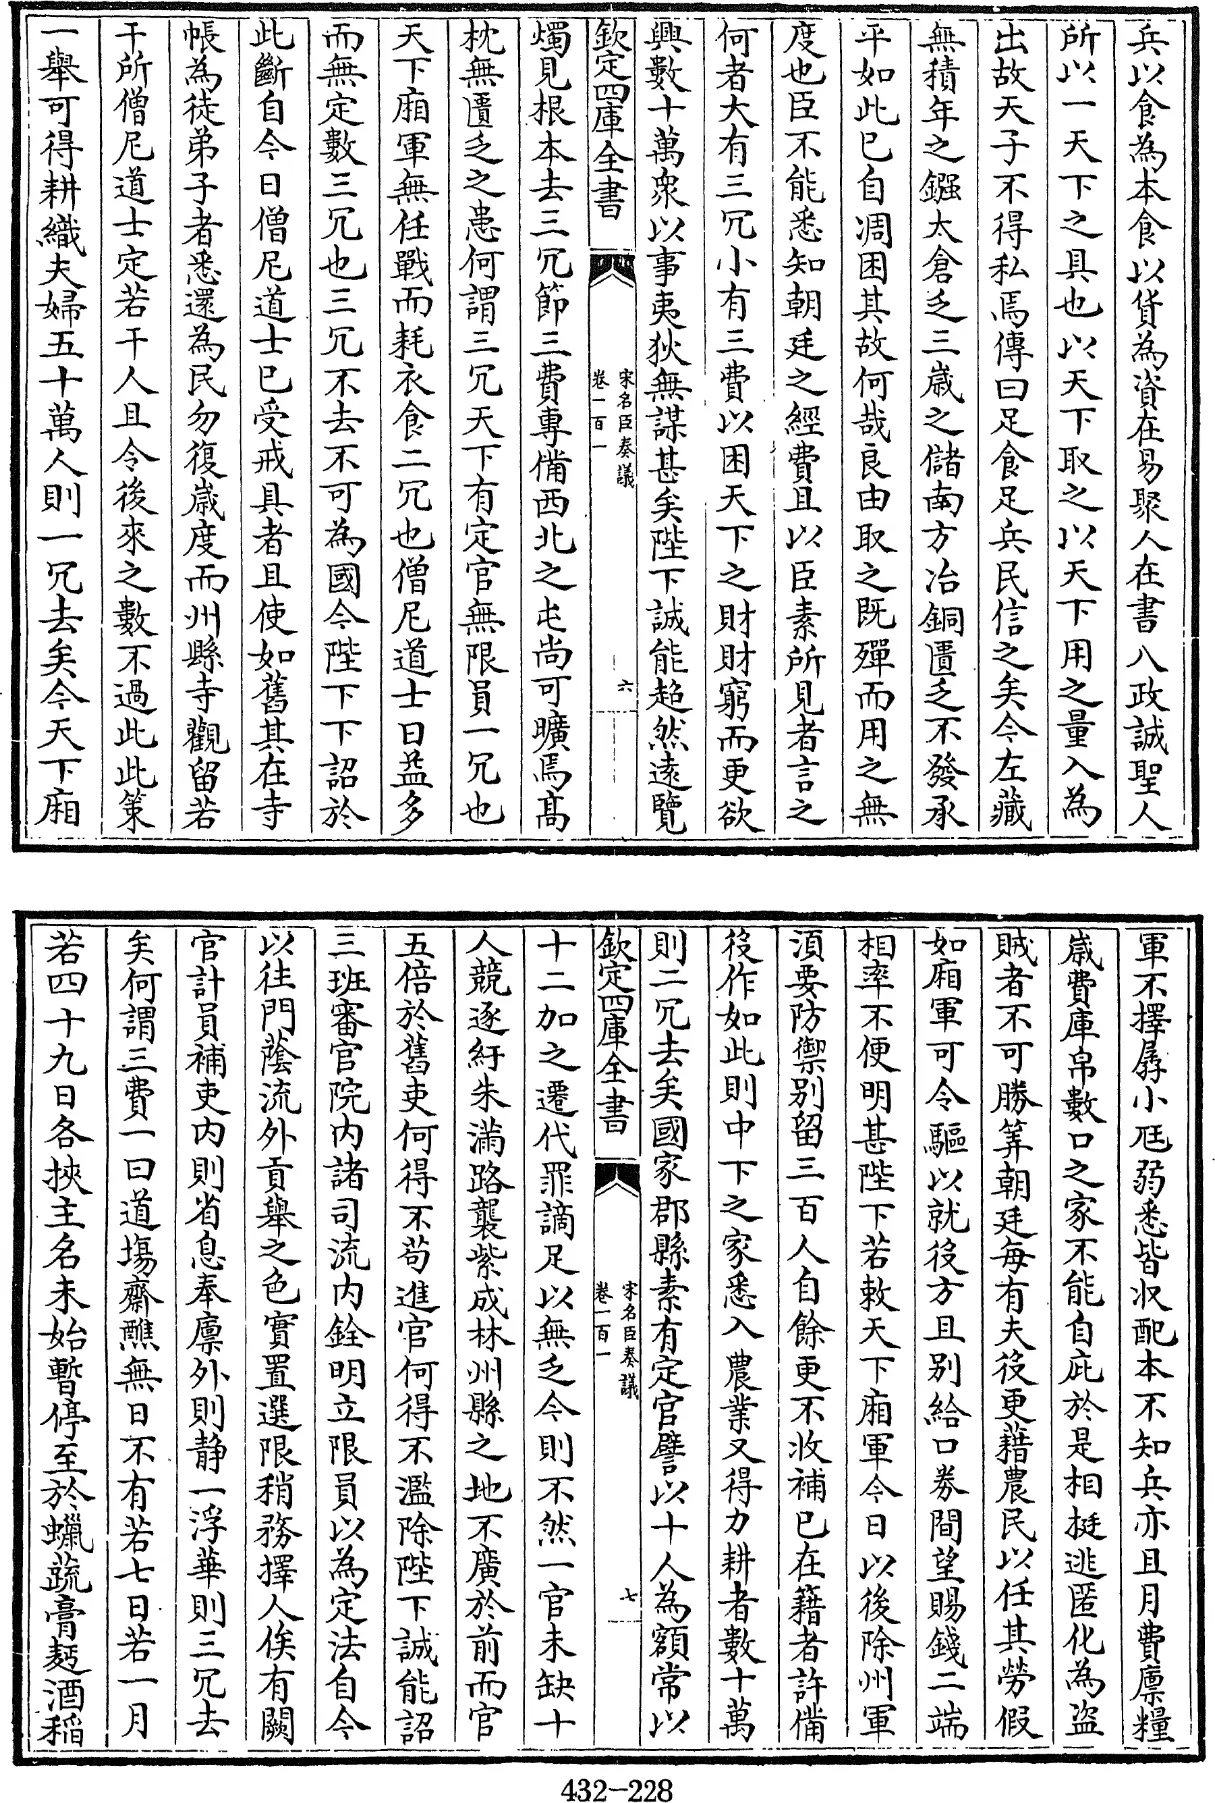 兵以食為本食以貨為資在易聚人在書八政誠聖人
所以一天下之具也以天下取之以天下用之量入為
出故天子不得私焉傳曰足食足兵民信之矣今左藏
無積年之鏹太倉乏三歲之儲南方冶銅匱乏不發承
平如此已自凋困其故何哉良由取之既殫而用之無
度也臣不能悉知朝廷之經費且以臣素所見者言之
何者大有三冗小有三費以困天下之財財窮而更欲
興數十萬衆以事夷狄無謀甚矣陛下誠能超然遠覽
欽定四庫全書
宋名臣奏議
卷一百一
六
燭見根本去三冗節三費專備西北之屯尚可曠焉髙
枕無匱乏之患何謂三冗天下有定官無限員一冗也
天下廂軍無任戰而耗衣食二冗也僧尼道士日益多
而無定數三冗也三冗不去不可為國今陛下下詔於
此斷自今日僧尼道士已受戒具者且使如舊其在寺
帳為徒弟子者悉還為民勿復歲度而州縣寺觀留若
干所僧尼道士定若干人且令後來之數不過此此策
一舉可得耕織夫婦五十萬人則一冗去矣今天下廂
軍不擇孱小尫弱悉皆收配本不知兵亦且月費廪糧
歲費庫帛數口之家不能自庇於是相挺逃匿化為盜
賊者不可勝筭朝廷每有夫役更藉農民以任其勞假
如廂軍可令驅以就役方且別給口券間望賜錢二端
相率不便明甚陛下若敕天下廂軍今日以後除州軍
湏要防禦別留三百人自餘更不收補已在籍者許備
役作如此則中下之家悉入農業又得力耕者數十萬
則二冗去矣國家郡縣素有定官譬以十人為額常以
欽定四庫全書
宋名臣奏議
卷一百一
七
十二加之遷代罪謫足以無乏今則不然一官未缺十
人競逐紆朱滿路襲紫成林州縣之地不廣於前而官
五倍於舊吏何得不苟進官何得不濫除陛下誠能詔
三班審官院内諸司流内銓明立限員以為定法自今
以往門蔭流外貢舉之色實置選限稍務擇人俟有闕
官計員補吏内則省息奉廪外則静一浮華則三冗去
矣何謂三費一曰道塲齋醮無日不有若七日若一月
若四十九日各挾主名未始暫停至於蠟蔬膏麪酒稻
432-228